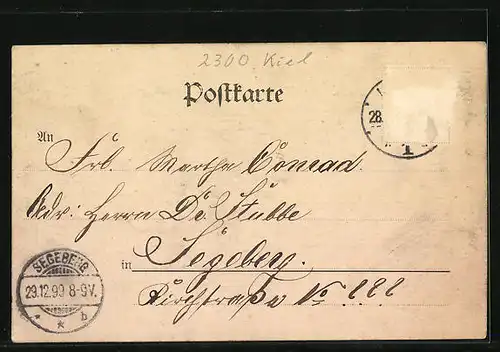 2300 Kiel
Postkarte
28.
1
An Frl. Martha Conrad.
Adr: Herrn Dr. Stubbe
in Segeberg.
Kirchstraße No
SEGEBERG
29.12.99 8-9V.
* b